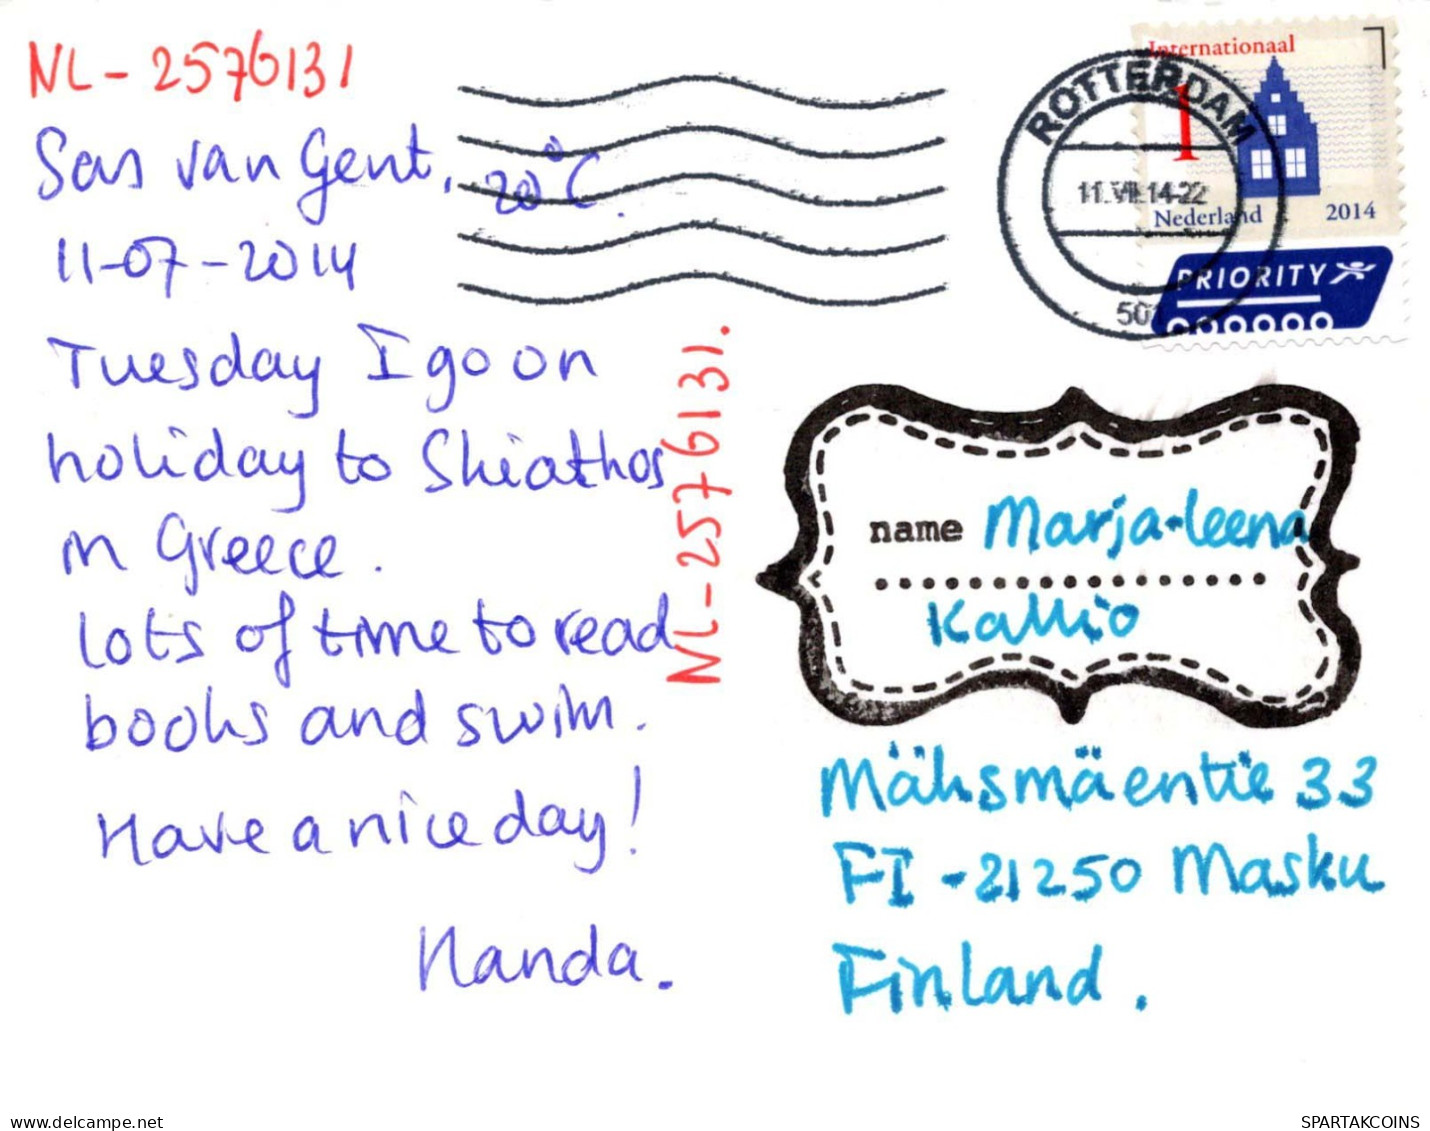 NL-2576131
Sas van Gent, 20°C.
11-07-2014
Tuesday I go on
holiday to Skiathos
in Greece.
Lots of time to read
books and swim.
Have a nice day!
Nanda.
NL-2576131.
ROTTERDAM
11.VII.14-22
Internationaal
1
Nederland 2014
PRIORITY
name Marja-Leena
Kallio
Mäksmäentie 33
FI-21250 Masku
Finland.
delcampe.net
SPARTAKCOINS